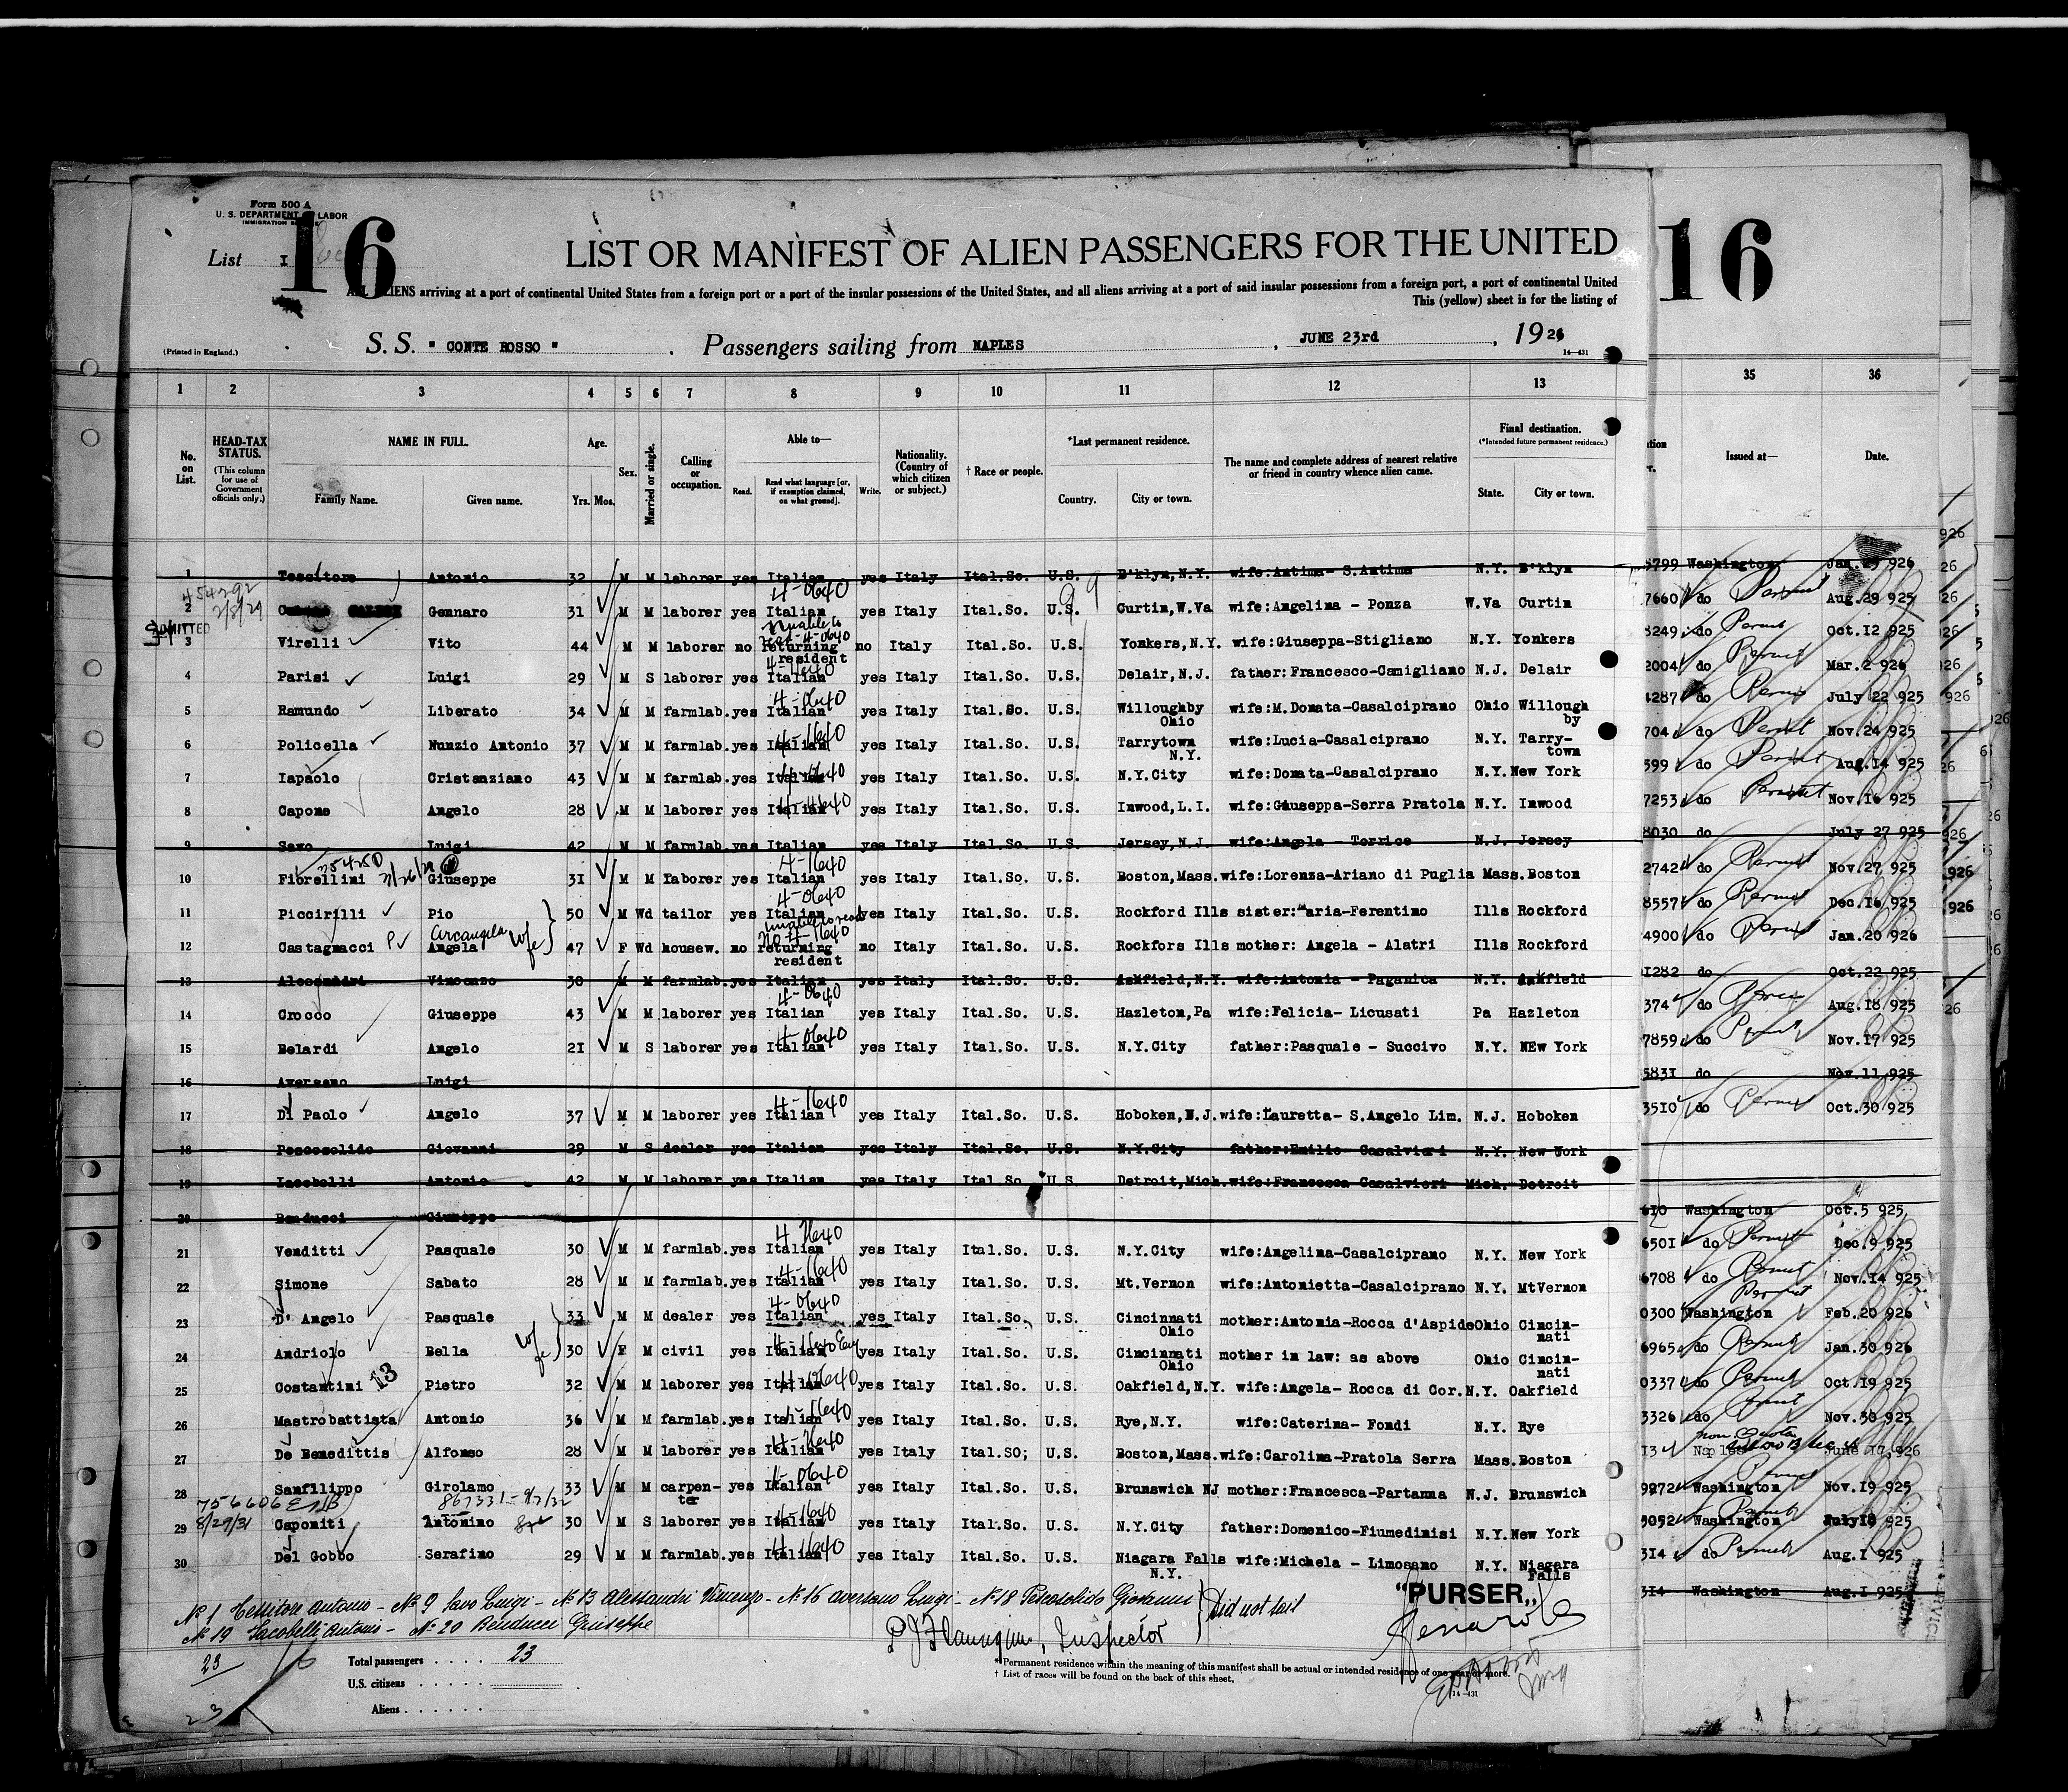 Form 500 A
U. S. DEPARTMENT LABOR
IMMIGRATION
List I
16
16
LIST OR MANIFEST OF ALIEN PASSENGERS FOR THE UNITED
ALL ALIENS arriving at a port of continental United States from a foreign port or a port of the insular possessions of the United States, and all aliens arriving at a port of said insular possessions from a foreign port, a port of continental United
This (yellow) sheet is for the listing of
(Printed in England.)
S. S. " CONTE ROSSO " . Passengers sailing from NAPLES , JUNE 23rd , 1926
14-431
1 2 3 4 5 6 7 8 9 10 11 12 13 35 36
No. on List.
HEAD-TAX STATUS.
(This column for use of Government officials only.)
NAME IN FULL.
Family Name. Given name.
Age.
Yrs. Mos.
Sex.
Married or single.
Calling or occupation.
Able to—
Read. Read what language [or, if exemption claimed, on what ground]. Write.
Nationality. (Country of which citizen or subject.)
† Race or people.
*Last permanent residence.
Country. City or town.
The name and complete address of nearest relative or friend in country whence alien came.
Final destination.
(*Intended future permanent residence.)
State. City or town.
Issued at— Date.
1 Tessitore Antonio 32 M M laborer yes Italian yes Italy Ital.So. U.S. B'klyn,N.Y. wife:Antima- S.Antima N.Y. B'klyn 5799 Washington Jan.29 926
454292 2/8/29 4-0640
2 Gennaro 31 M M laborer yes Italian yes Italy Ital.So. U.S. Curtin,W.Va wife:Angelina - Ponza W.Va Curtin 7660 do Permit Aug.29 925
ADMITTED unable to read 4-0640
3 Virelli Vito 44 M M laborer no returning resident no Italy Ital.So. U.S. Yonkers,N.Y. wife:Giuseppa-Stigliano N.Y. Yonkers 8249 do Permit Oct.12 925
4 Parisi Luigi 29 M S laborer yes Italian yes Italy Ital.So. U.S. Delair,N.J. father:Francesco-Camigliano N.J. Delair 2004 do Permit Mar.2 926
4-0640
5 Ramundo Liberato 34 M M farmlab.yes Italian yes Italy Ital.So. U.S. Willoughby Ohio wife:M.Donata-Casalciprano Ohio Willough by 4287 do Permit July 22 925
4-1640
6 Policella Nunzio Antonio 37 M M farmlab.yes Italian yes Italy Ital.So. U.S. Tarrytown N.Y. wife:Lucia-Casalciprano N.Y. Tarry- town 704 do Permit Nov.24 925
7 Iapaolo Cristanziano 43 M M farmlab.yes Italian yes Italy Ital.So. U.S. N.Y.City wife:Donata-Casalciprano N.Y.New York 599 do Permit Aug.14 925
8 Capone Angelo 28 M M laborer yes Italian yes Italy Ital.So. U.S. Inwood,L.I. wife:Giuseppa-Serra Pratola N.Y. Inwood 7253 do Permit Nov.16 925
9 Savo Luigi 42 M M farmlab.yes Italian yes Italy Ital.So. U.S. Jersey,N.J. wife:Angela - Torrice N.J. Jersey 8030 do July 27 925
4-1640
10 Fiorellini Giuseppe 31 M M laborer yes Italian yes Italy Ital.So. U.S. Boston,Mass.wife:Lorenza-Ariano di Puglia Mass.Boston 2742 do Permit Nov.27 925
4-0640
11 Piccirilli Pio 50 M Wd tailor yes Italian yes Italy Ital.So. U.S. Rockford Ills sister:Maria-Ferentino Ills Rockford 8557 do Permit Dec.16 925
Arcangela w/c unable to read 4-1640
12 Castagnacci Angela 47 F Wd housew. no returning resident no Italy Ital.So. U.S. Rockfors Ills mother: Angela - Alatri Ills Rockford 4900 do Permit Jan.20 926
13 Alessandri Vincenzo 30 M M farmlab.yes Italian yes Italy Ital.So. U.S. Ashfield,N.Y. wife:Antonia - Paganica N.Y. Ashfield 1282 do Oct.22 925
4-0640
14 Crocco Giuseppe 43 M M laborer yes Italian yes Italy Ital.So. U.S. Hazleton,Pa wife:Felicia- Licusati Pa Hazleton 374 do Permit Aug.18 925
4-0640
15 Belardi Angelo 21 M S laborer yes Italian yes Italy Ital.So. U.S. N.Y.City father:Pasquale - Succivo N.Y. NEw York 7859 do Permit Nov.17 925
16 Aversano Luigi 5831 do Nov.11 925
4-1640
17 Di Paolo Angelo 37 M M laborer yes Italian yes Italy Ital.So. U.S. Hoboken,N.J.wife:Lauretta- S.Angelo Lim. N.J. Hoboken 3510 do Permit Oct.30 925
18 Pescosolido Giovanni 29 M S dealer yes Italian yes Italy Ital.So. U.S. N.Y.City father:Emilio- Casalvieri N.Y. New York
19 Iacobelli Antonio 42 M M laborer yes Italian yes Italy Ital.So U.S. Detroit,Mich.wife:Francesca Casalvieri Mich. Detroit
20 Benducci Giuseppe 610 Washington Oct.5 925
21 Venditti Pasquale 30 M M farmlab.yes Italian yes Italy Ital.So. U.S. N.Y.City wife:Angelina-Casalciprano N.Y. New York 6501 do Permit Dec.9 925
22 Simone Sabato 28 M M farmlab.yes Italian yes Italy Ital.So. U.S. Mt.Vernon wife:Antonietta-Casalciprano N.Y. MtVernon 6708 do Permit Nov.14 925
4-0640
23 D' Angelo Pasquale 33 M M dealer yes Italian yes Italy Ital.So. U.S. Cincinnati Ohio mother:Antonia-Rocca d'AspideOhio Cincin- nati 0300 Washington Permit Feb.20 926
24 Andriolo Bella 30 F M civil yes Italian yes Italy Ital.So. U.S. Cincinnati Ohio mother in law: as above Ohio Cincin- nati 6965 do Permit Jan.30 926
25 Costantini 13 Pietro 32 M M laborer yes Italian yes Italy Ital.So. U.S. Oakfield,N.Y. wife:Angela- Rocca di Cor.N.Y. Oakfield 0337 do Permit Oct.19 925
26 Mastrobattista Antonio 36 M M farmlab.yes Italian yes Italy Ital.So. U.S. Rye,N.Y. wife:Caterina- Fondi N.Y. Rye 3326 do Permit Nov.30 925
27 De Benedittis Alfonso 28 M M laborer yes Italian yes Italy Ital.SO; U.S. Boston,Mass.wife:Carolina-Pratola Serra Mass.Boston 13 Naples June 17,926
28 Sanfilippo Girolamo 33 M M carpen- ter yes Italian yes Italy Ital.So. U.S. Brunswick NJ mother:Francesca-Partanna N.J. Brunswick 9272 Washington Permit Nov.19 925
756606 8/29/31 867331-9/7/32
29 Caponiti Antonino 30 M S laborer yes Italian yes Italy Ital.So. U.S. N.Y.City father:Domenico-Fiumedinisi N.Y.New York 3052 Washington Permit July18 925
30 Del Gobbo Serafino 29 M M farmlab.yes Italian yes Italy Ital.So. U.S. Niagara Falls N.Y. wife:Michela - Limosano N.Y. Niagara Falls 314 do Permit Aug.1 925
314 Washington Aug.1 925
No 1 Tessitore Antonio - No 9 Savo Luigi - No 13 Alessandri Vincenzo - No 16 Aversano Luigi - No 18 Pescosolido Giovanni
No 19 Iacobelli Antonio - No 20 Benducci Giuseppe
Did not sail
"PURSER"
P J Flanagan, Inspector
23
Total passengers . . . . . 23
U.S. citizens . . . . . .
Aliens . . . . . . .
23
* Permanent residence within the meaning of this manifest shall be actual or intended residence of one year or more.
† List of races will be found on the back of this sheet.
14-431